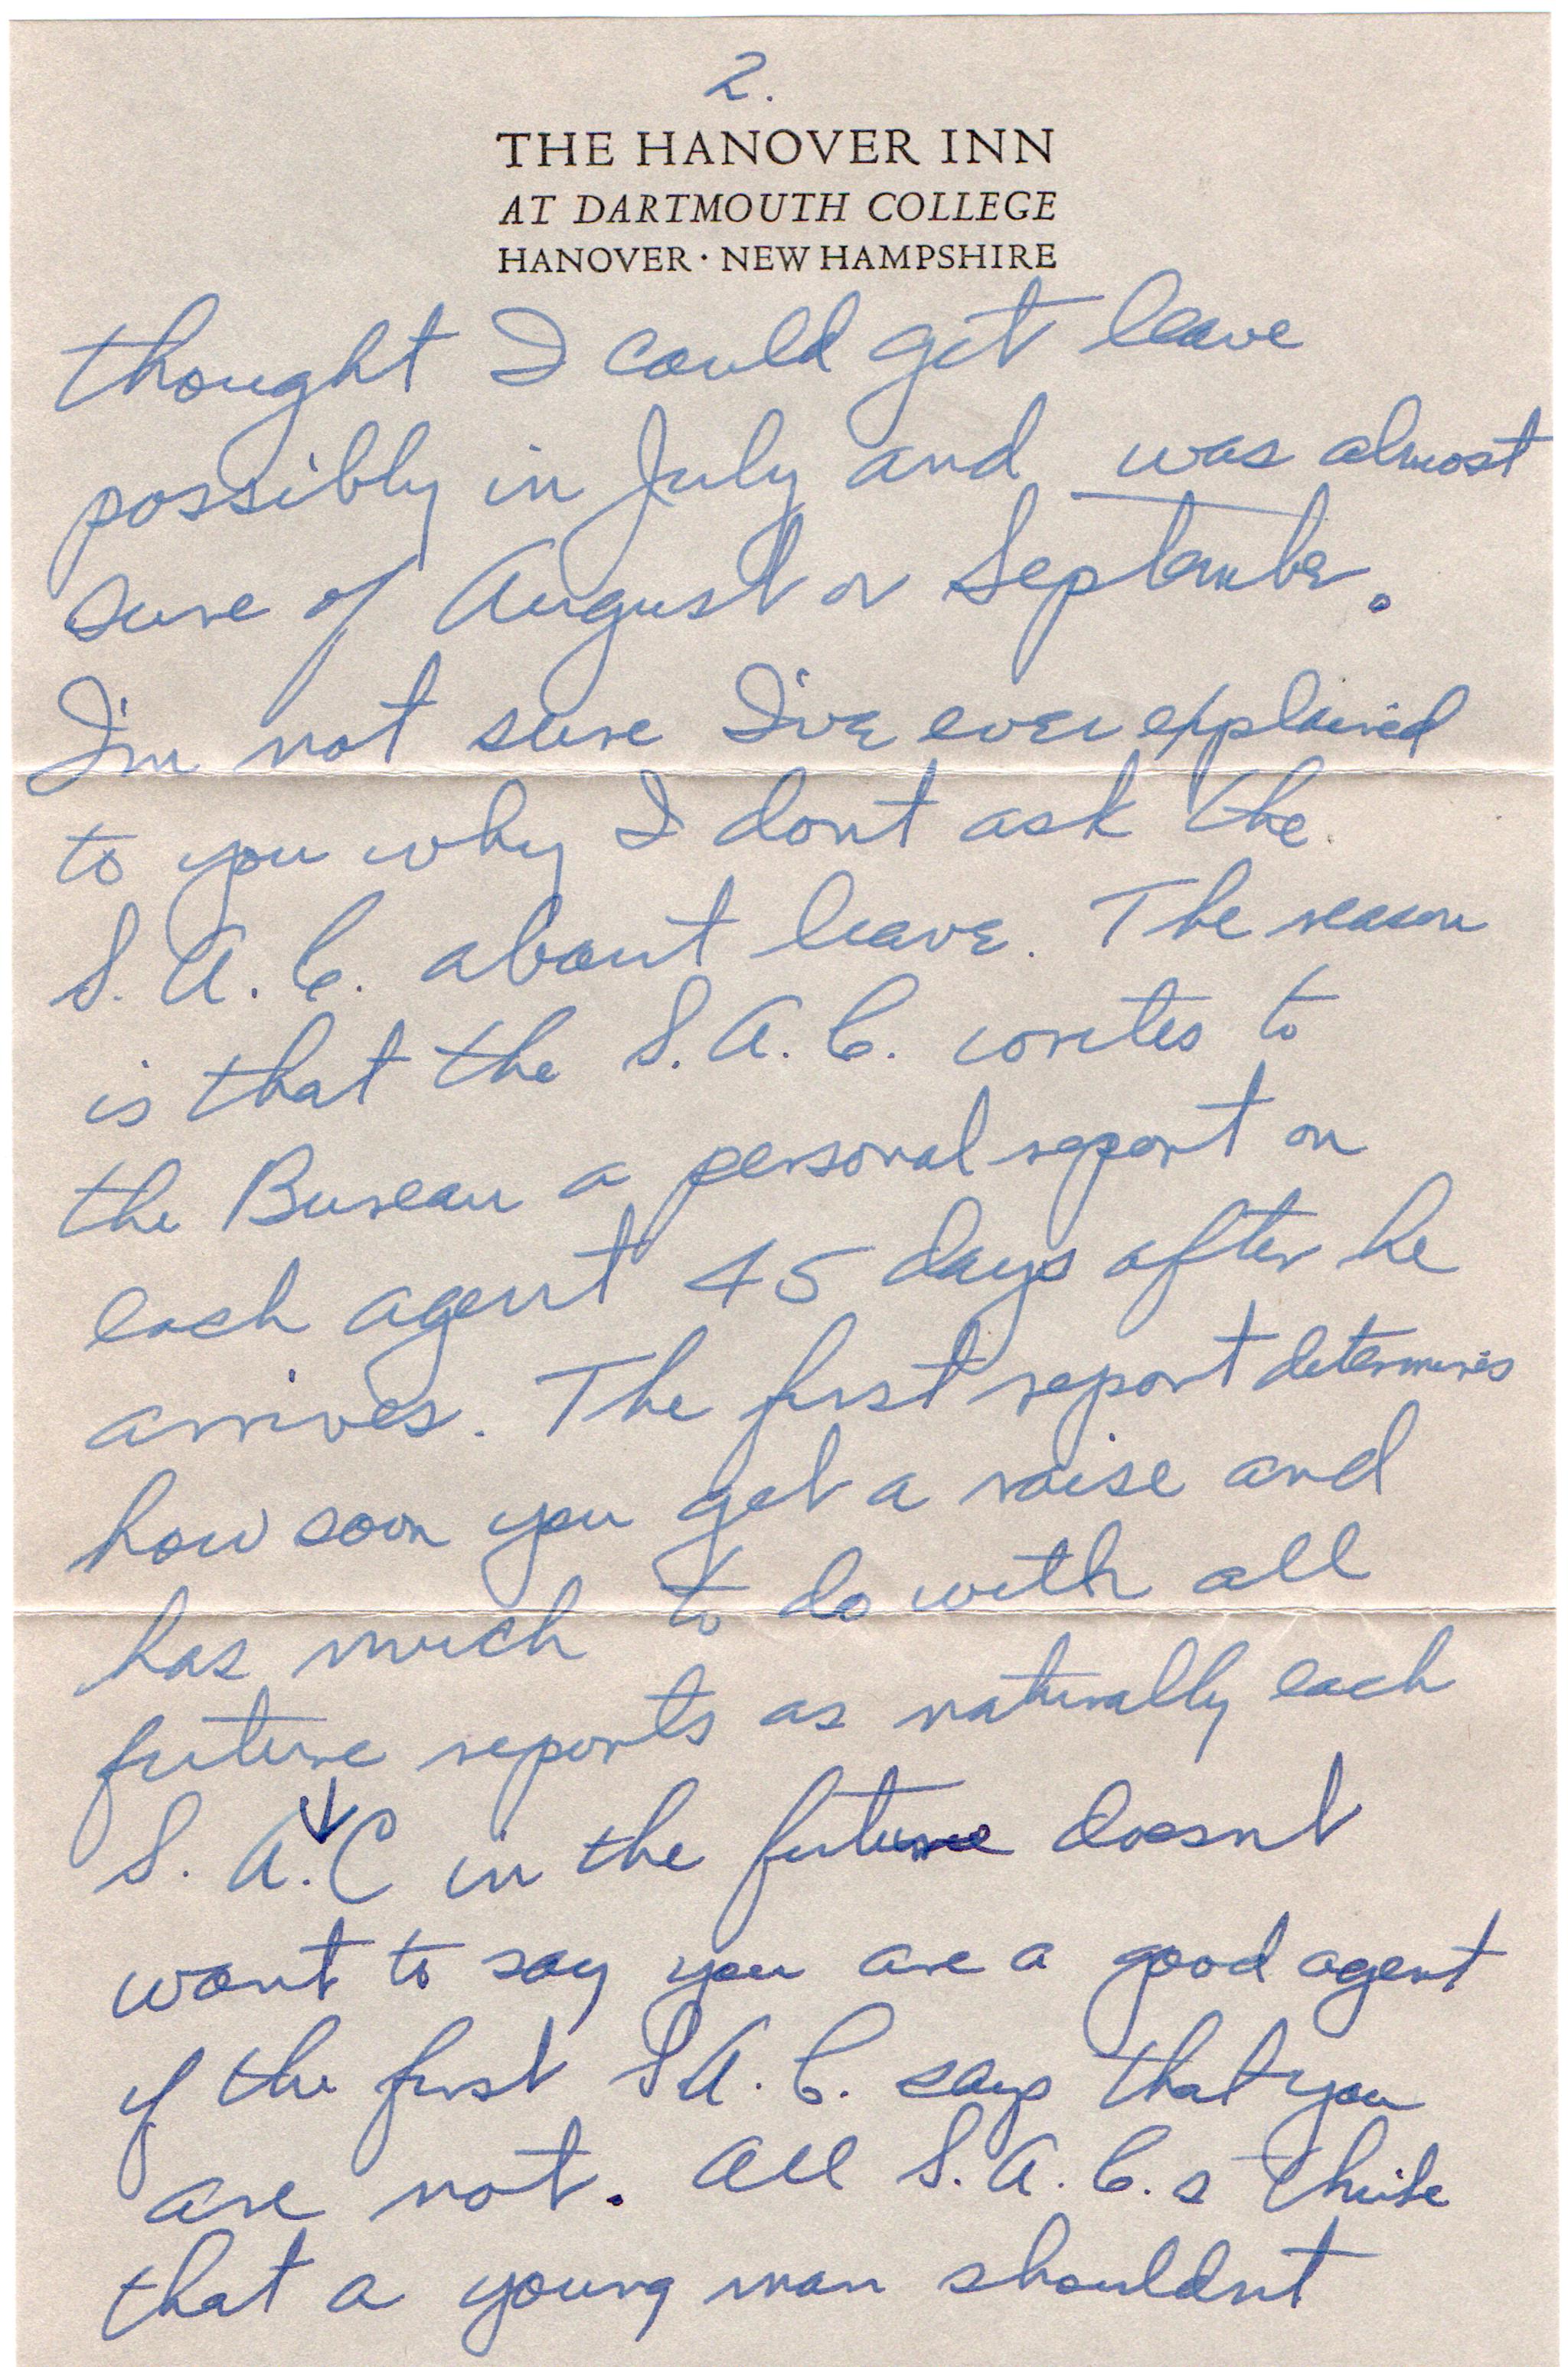 2.
THE HANOVER INN
AT DARTMOUTH COLLEGE
HANOVER · NEW HAMPSHIRE
thought I could get leave
possibly in July and was almost
sure of August or September.
I'm not sure I've ever explained
to you why I dont ask the
S. A. C. about leave. The reason
is that the S. A. C. writes to
the Bureau a personal report on
each agent 45 days after he
arrives. The first report determines
how soon you get a raise and
has much to do with all
future reports as naturally each
S. A. C in the future doesnt
want to say you are a good agent
if the first S A. C. says that you
are not. All S. A. C. s think
that a young man shouldnt